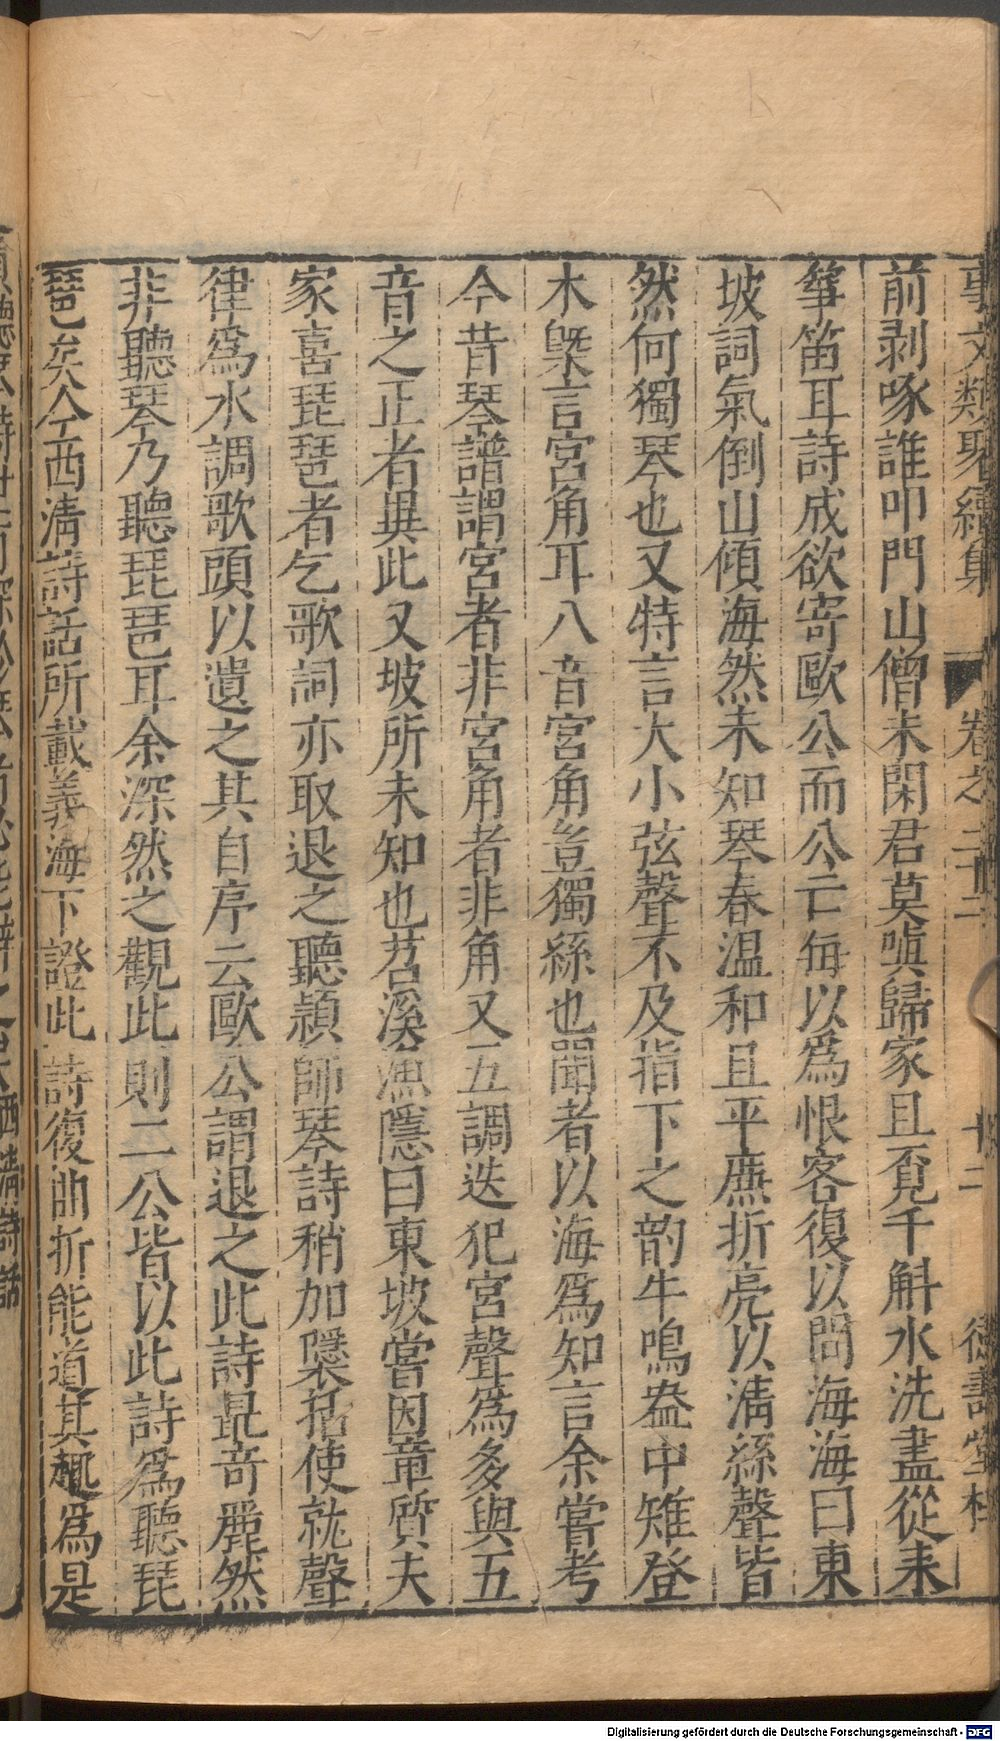 事文類聚續集 卷之二十二 十二 德壽堂梓
前剥啄誰叩門山僧未閑君莫嗔歸家且覓千斛水洗盡從來
箏笛耳詩成欲寄歐公而公亡每以爲恨客復以問海海曰東
坡詞氣倒山傾海然未知琴春温和且平廉折亮以清絲聲皆
然何獨琴也又特言大小弦聲不及指下之韵牛鳴盎中雉登
木槩言宮角耳八音宮角豈獨絲也聞者以海爲知言余嘗考
今昔琴譜謂宮者非宮角者非角又五調迭犯宮聲爲多與五
音之正者異此又坡所未知也苕溪漁隱曰東坡嘗因章質夫
家喜琵琶者乞歌詞亦取退之聽潁師琴詩稍加隱括使就聲
律爲水調歌頭以遺之其自序云歐公謂退之此詩最奇麗然
非聽琴乃聽琵琶耳余深然之觀此則二公皆以此詩爲聽琵
琶矣今西清詩話所載義海下證此詩復曲折能道其趣爲是
西清詩話
Digitalisierung gefördert durch die Deutsche Forschungsgemeinschaft - DFG